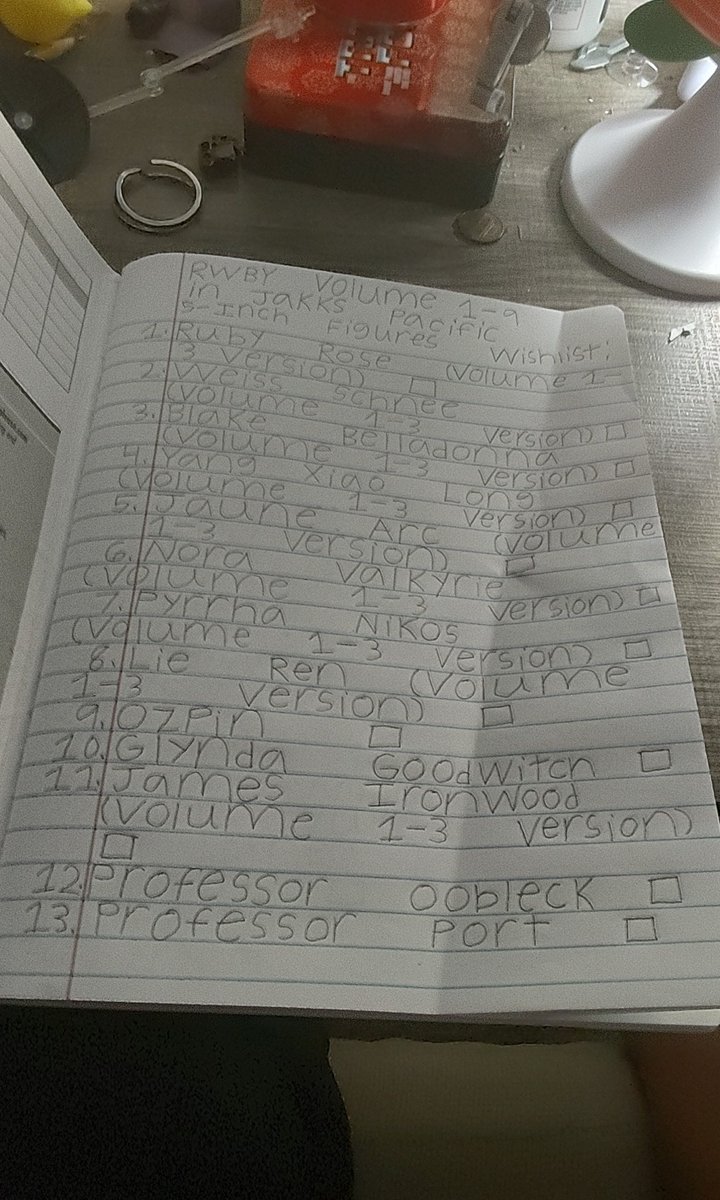 RWBY Volume 1-9
in Jakks Pacific
5-Inch Figures Wishlist:
1. Ruby Rose (Volume 1-
3 Version) □
2. Weiss Schnee
(Volume 1-3 Version) □
3. Blake Belladonna
(Volume 1-3 Version) □
4. Yang Xiao Long
(Volume 1-3 Version) □
5. Jaune Arc (Volume
1-3 Version) □
6. Nora Valkyrie
(Volume 1-3 Version) □
7. Pyrrha Nikos
(Volume 1-3 Version) □
8. Lie Ren (Volume
1-3 Version) □
9. Ozpin □
10. Glynda Goodwitch □
11. James Ironwood
(Volume 1-3 Version)
□
12. Professor Oobleck □
13. Professor Port □